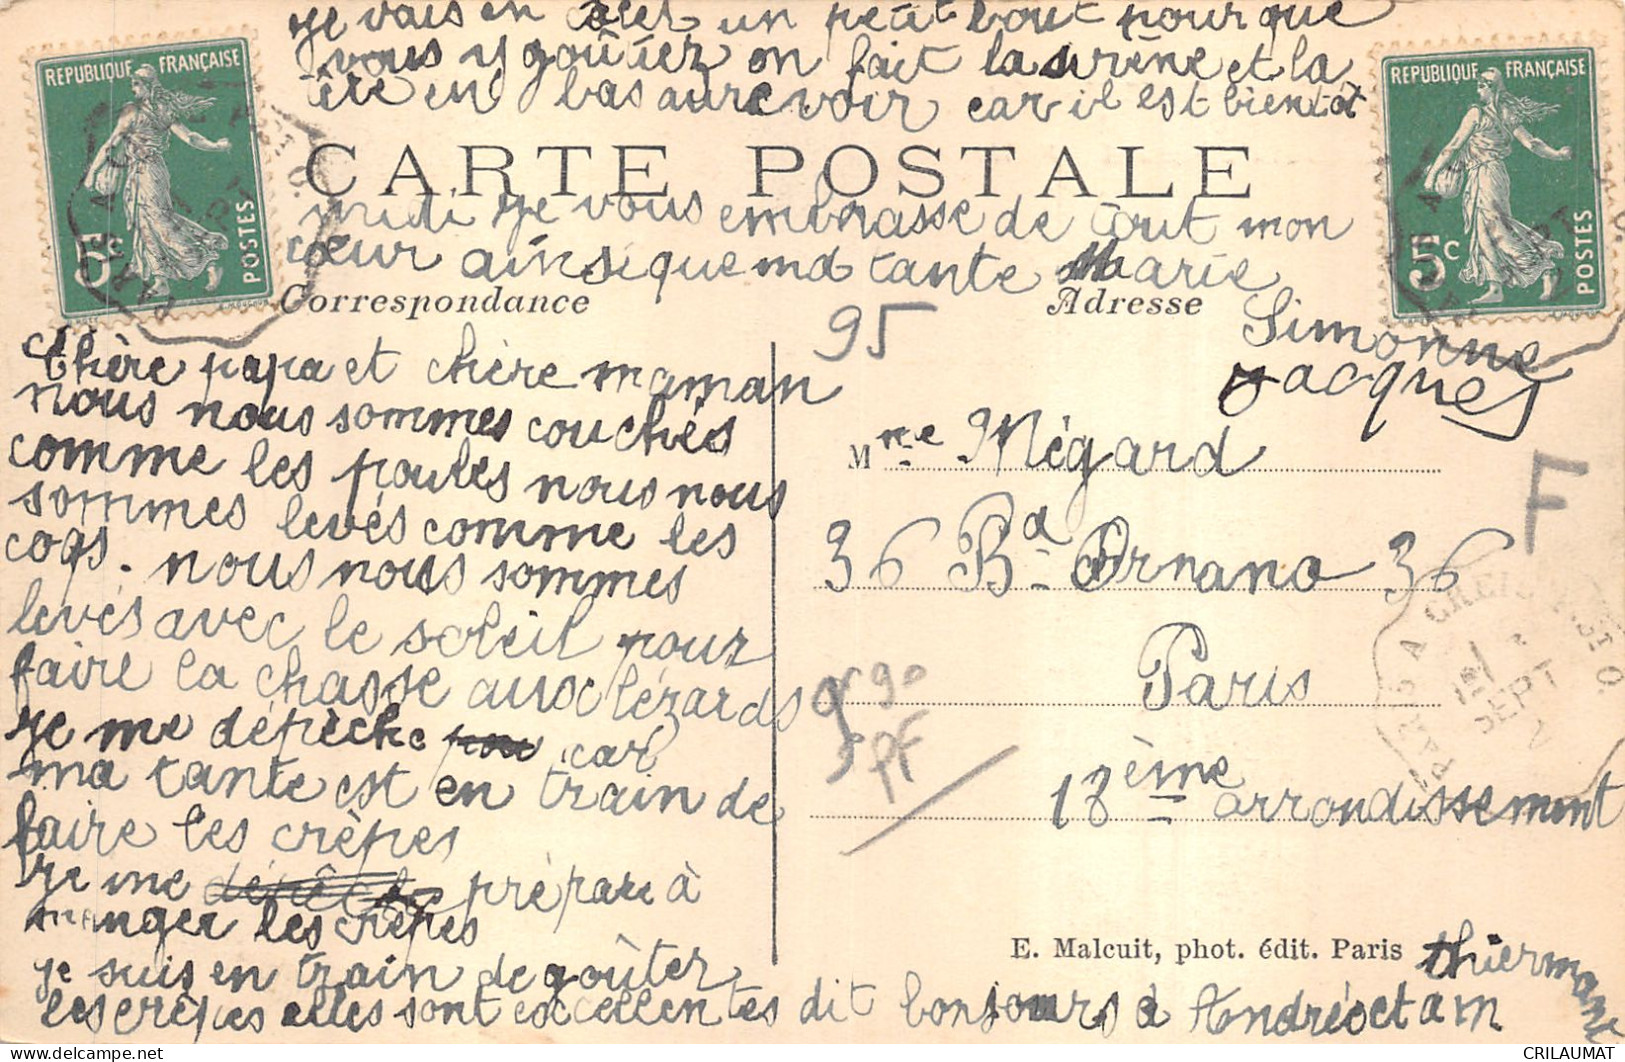 Je vais en un petit bout pour que
vous y goûtiez on fait la sirène et la
en bas aure voir car il est bientot
REPUBLIQUE FRANÇAISE
5c
POSTES
REPUBLIQUE FRANÇAISE
5c
POSTES
CARTE POSTALE
midi je vous embrasse de tout mon
cœur ainsi que ma tante Marie
Correspondance
Adresse
Simonne
Jacques
95
Chère papa et chère maman
nous nous sommes couchés
comme les poules nous nous
sommes levés comme les
coqs. nous nous sommes
levés avec le soleil pour
faire la chasse aux lézards
je me dépêche car
ma tante est en train de
faire les crêpes
je me dépêche prépare à
manger les crêpes
je suis en train de goûter
les crêpes elles sont excellentes dit bonjours à
Mme Mégard
36 Bd Ornano 36
Paris
18ème arrondissement
F
PF
PARIS A CREIL
SEPT
E. Malcuit, phot. édit. Paris
CRILAUMAT